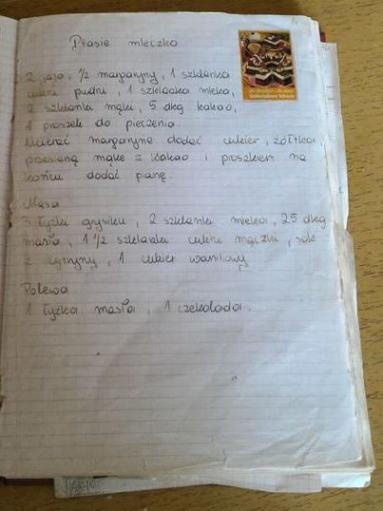 Ptasie mleczko
2 jaja, 1/2 margaryny, 1 szklanka
cukru pudru, 1 szklanka mleka,
2 szklanki mąki, 5 dkg kakao,
1 proszek do pieczenia.
Ucierać margarynę dodać cukier, żółtka,
przesianą mąkę z kakao i proszkiem na
końcu dodać pianę.
Masa
3 łyżki grysiku, 2 szklanki mleka, 25 dkg
masła, 1 1/2 szklanki cukru mączki, sok
z cytryny, 1 cukier waniliowy
Polewa
1 łyżka masła, 1 czekolada.